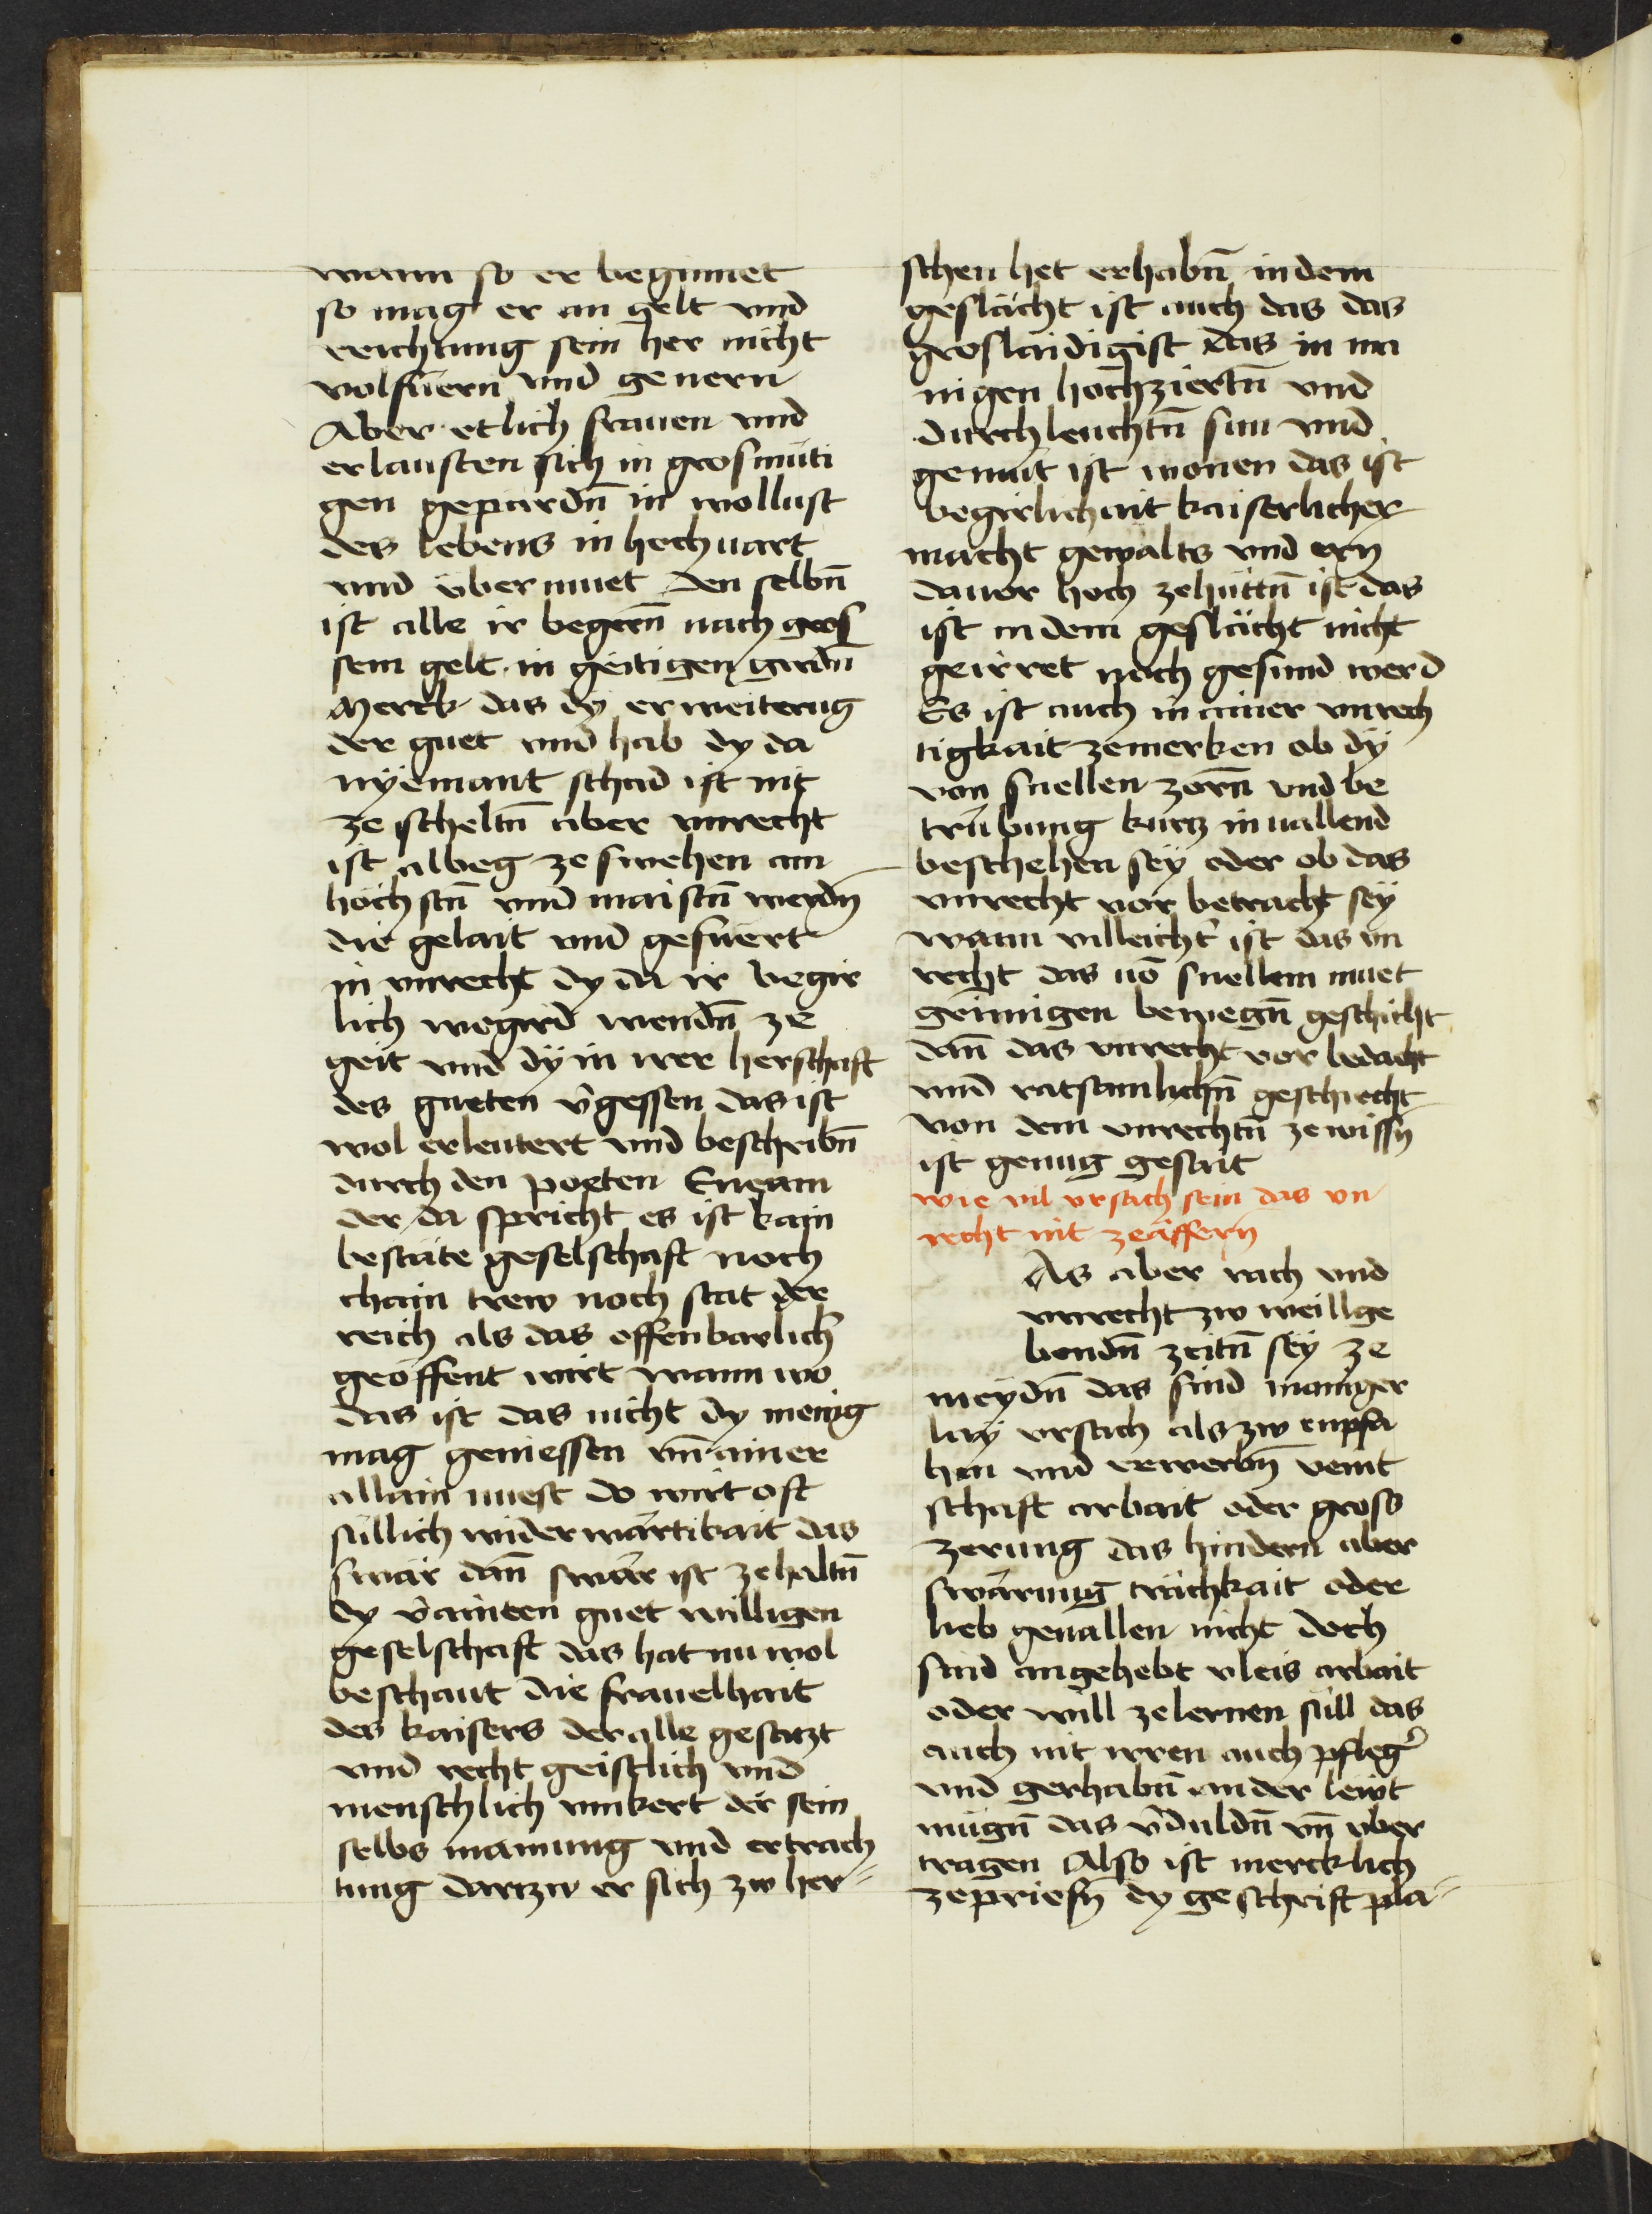 wann so er beginnet
so mag er an gelt vnd
reichtung sein her nicht
volfüern vnd genern
Aber etlich frauen vnd
erlausten sich in grosmüti
gen gepärdn̄ in wollust
des lebens in hochuart
vnd übermuet den selbn̄
ist alle ir begern̄ nach gros
sem gelt in geitigen girdn̄
Merck das dy erweiterug
der guet vnd hab dy da
nÿemant schad ist nit
ze scheltn̄ aber vnrecht
ist albeg ze fliehen am
höchstn̄ vnd maistn̄ werdn̄
die gelait vnd gefüert
in vnrecht dy da ir begir
lich wegird wendn̄ ze
geit vnd dÿ in irer herschaft
des gueten v̄gessen das ist
wol erleutert vnd beschribn̄
durch den poeten Eneam
der da spricht es ist kain
bestäte geselschaft noch
chain trew noch stat der
reich als das offenbarlich
geöffent wirt wann wo
das ist das nicht dy menig
mag geniessen vn̄ ainer
allain muest do wirt oft
süllich widerwärtikait das
swär dan̄ swär ist zehaltn̄
dy v̄ainten guet willigen
geselschaft das hat nu wol
beschaut die frauelhait
des kaisers der alle gesatzt
vnd recht geistlich vnd
menschlich vmkert der sein
selbs mainung vnd ertrach
tung dartzw er sich zw her⸗
schen het erhabn̄ in dem
geslächt ist auch das das
groslaidigist das in ma
nigen hochziertn̄ vnd
durchleuchtn̄ sin vnd
gemüt ist wonen das ist
begirlichait kaiserlicher
macht gewalts vnd ern
dauor hoch zehüttn̄ ist das
ist in dem geslächt nicht
geirret noch gesund werd
Es ist auch in ainer vnrech
tigkait zemerken ob dÿ
von snellen zorn̄ vnd be
trübung kurz inuallend
beschehen sÿ oder ob das
vnrecht vor betracht sÿ
wann villeicht̓ ist das vn
recht das uō snellem muet
geinnigen bewegn̄ geschicht
dan̄ das vnrecht vor bedacht
vnd ratsamlichn̄ geschiecht
von dem vnrechtn̄ zewissn̄
ist genug gesait
wie vil vrsach sein das vn
recht nit zeäffern
As aber rach vnd
vnrecht zw weillge
bendn̄ zeitn̄ sÿ ze
meydn̄ das sind maniger
lay vrsach als zw enpfa
hen vnd erwerbn̄ veint
schaft arbait oder gross
zerung das hindern aber
swärung trächkait oder
lieb geuallen nicht doch
sind angehebt vleis arbait
oder will zelernen süll das
auch nit irren auch pfleg̓
vnd gerhabn̄ ander lewt
mügn̄ das v̄duldn̄ vn̄ vber
tragen Also ist mercklich
zepriesn̄ dy geschrift pla⸗